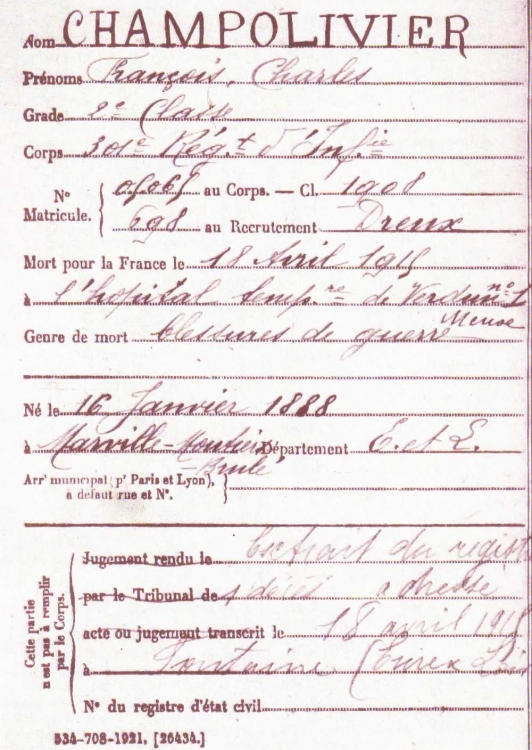 Nom CHAMPOLIVIER
Prénoms François, Charles
Grade 2e Classe
Corps 301e Régt d'Infie
No Matricule. au Corps. — Cl. 1908
698 au Recrutement Dreux
Mort pour la France le 18 Avril 1915
à l'hopital tempre de Verdun no 1
Meuse
Genre de mort blessures de guerre
Né le 16 Janvier 1888
à Marville-Moutiers Département E. et L.
-Brulé
Arrt municipal (pr Paris et Lyon),
à défaut rue et No.
Cette partie
n'est pas à remplir
par le Corps.
Jugement rendu le Extrait du
par le Tribunal de décès adressé
acte ou jugement transcrit le 18 avril
à Fontaine
No du registre d'état civil
534-708-1921. [26434.]